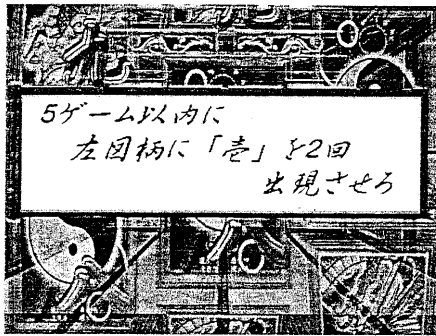 5ゲーム以内に
左図柄に「壱」を2回
出現させろ